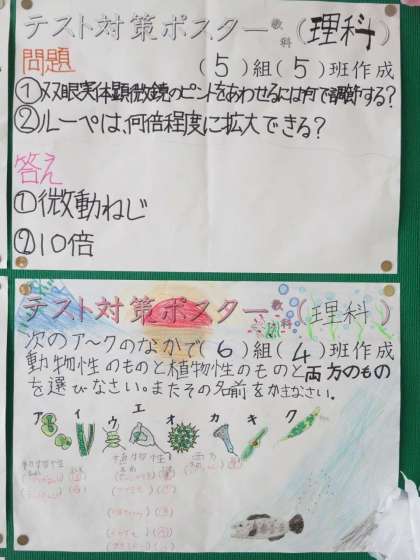 テスト対策ポスター 教科(理科)
問題 (5)組(5)班作成
①双眼実体顕微鏡のピントをあわせるには何で調節する?
②ルーペは、何倍程度に拡大できる?
答え
①微動ねじ
②10倍
テスト対策ポスター 教科(理科)
次のア~クのなかで(6)組(4)班作成
動物性のものと植物性のものと両方のもの
を選びなさい。またその名前をかきなさい。
ア イ ウ エ オ カ キ ク
動物性 植物性 両方